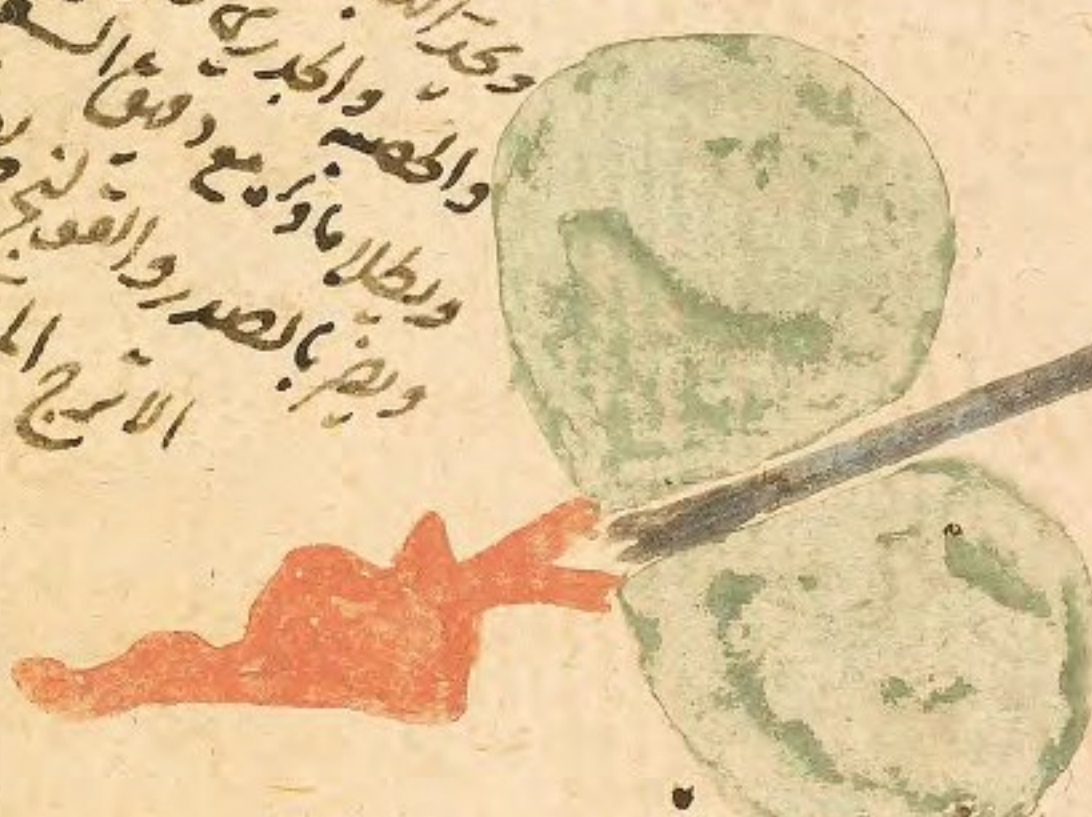 ويحد
والحصبه والجدري
ويطلا ماوه مع دقيق
ويضر بالصدر والقولنج
الاترج